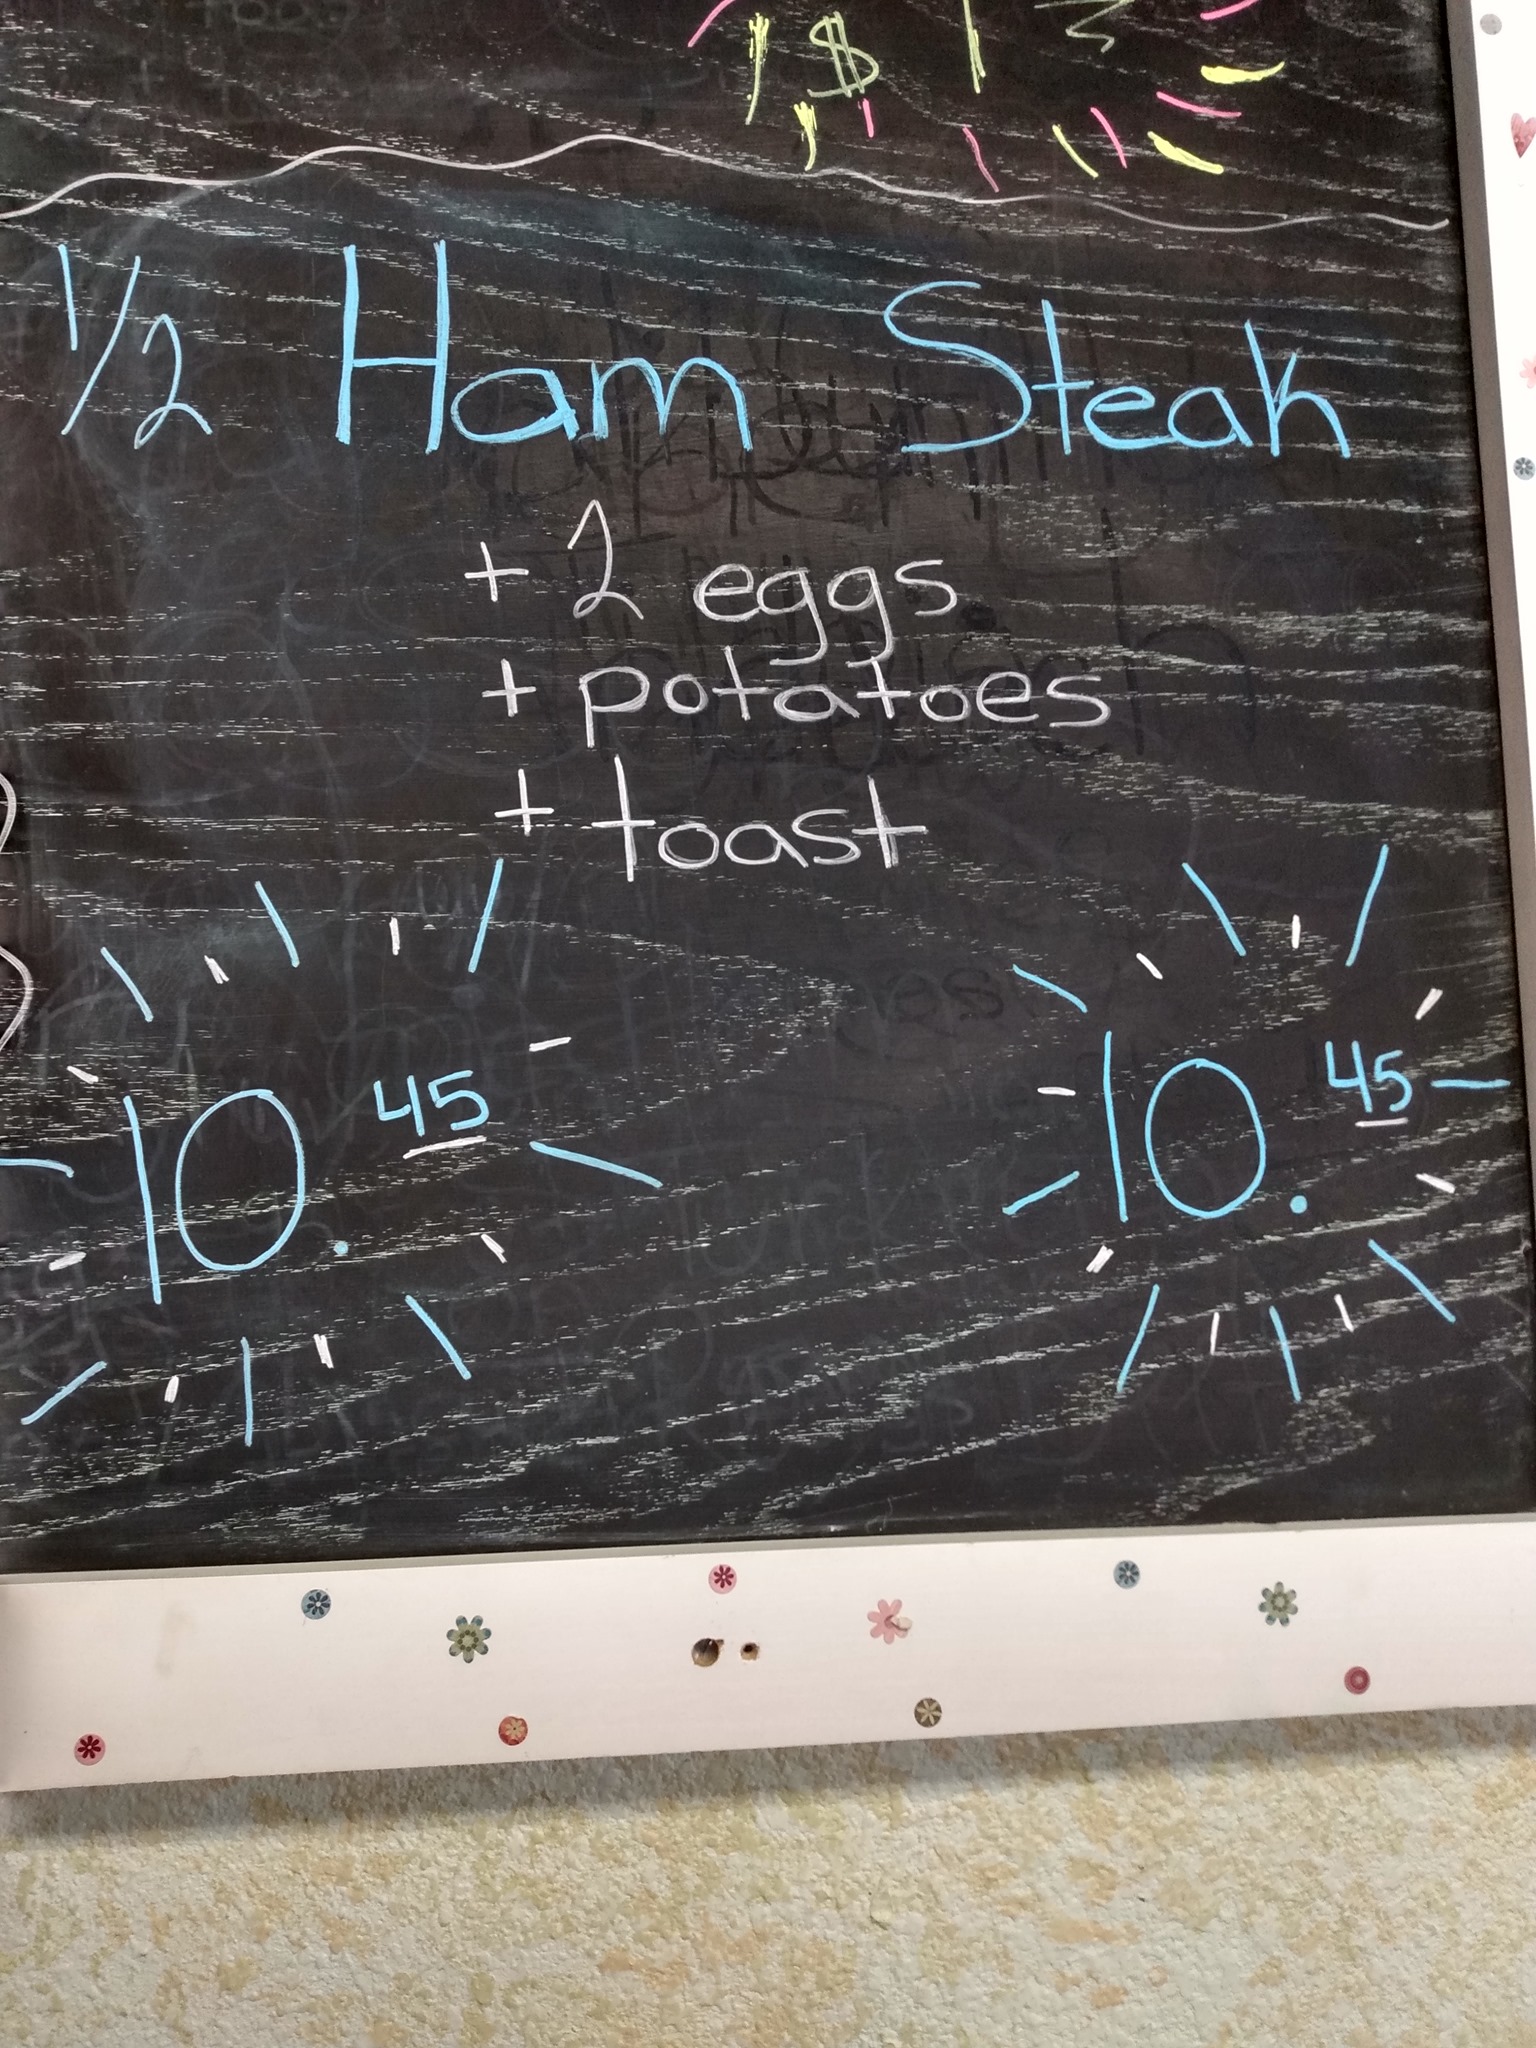 $13
1/2 Ham Steak
+ 2 eggs
+ potatoes
+ toast
10.45 10.45